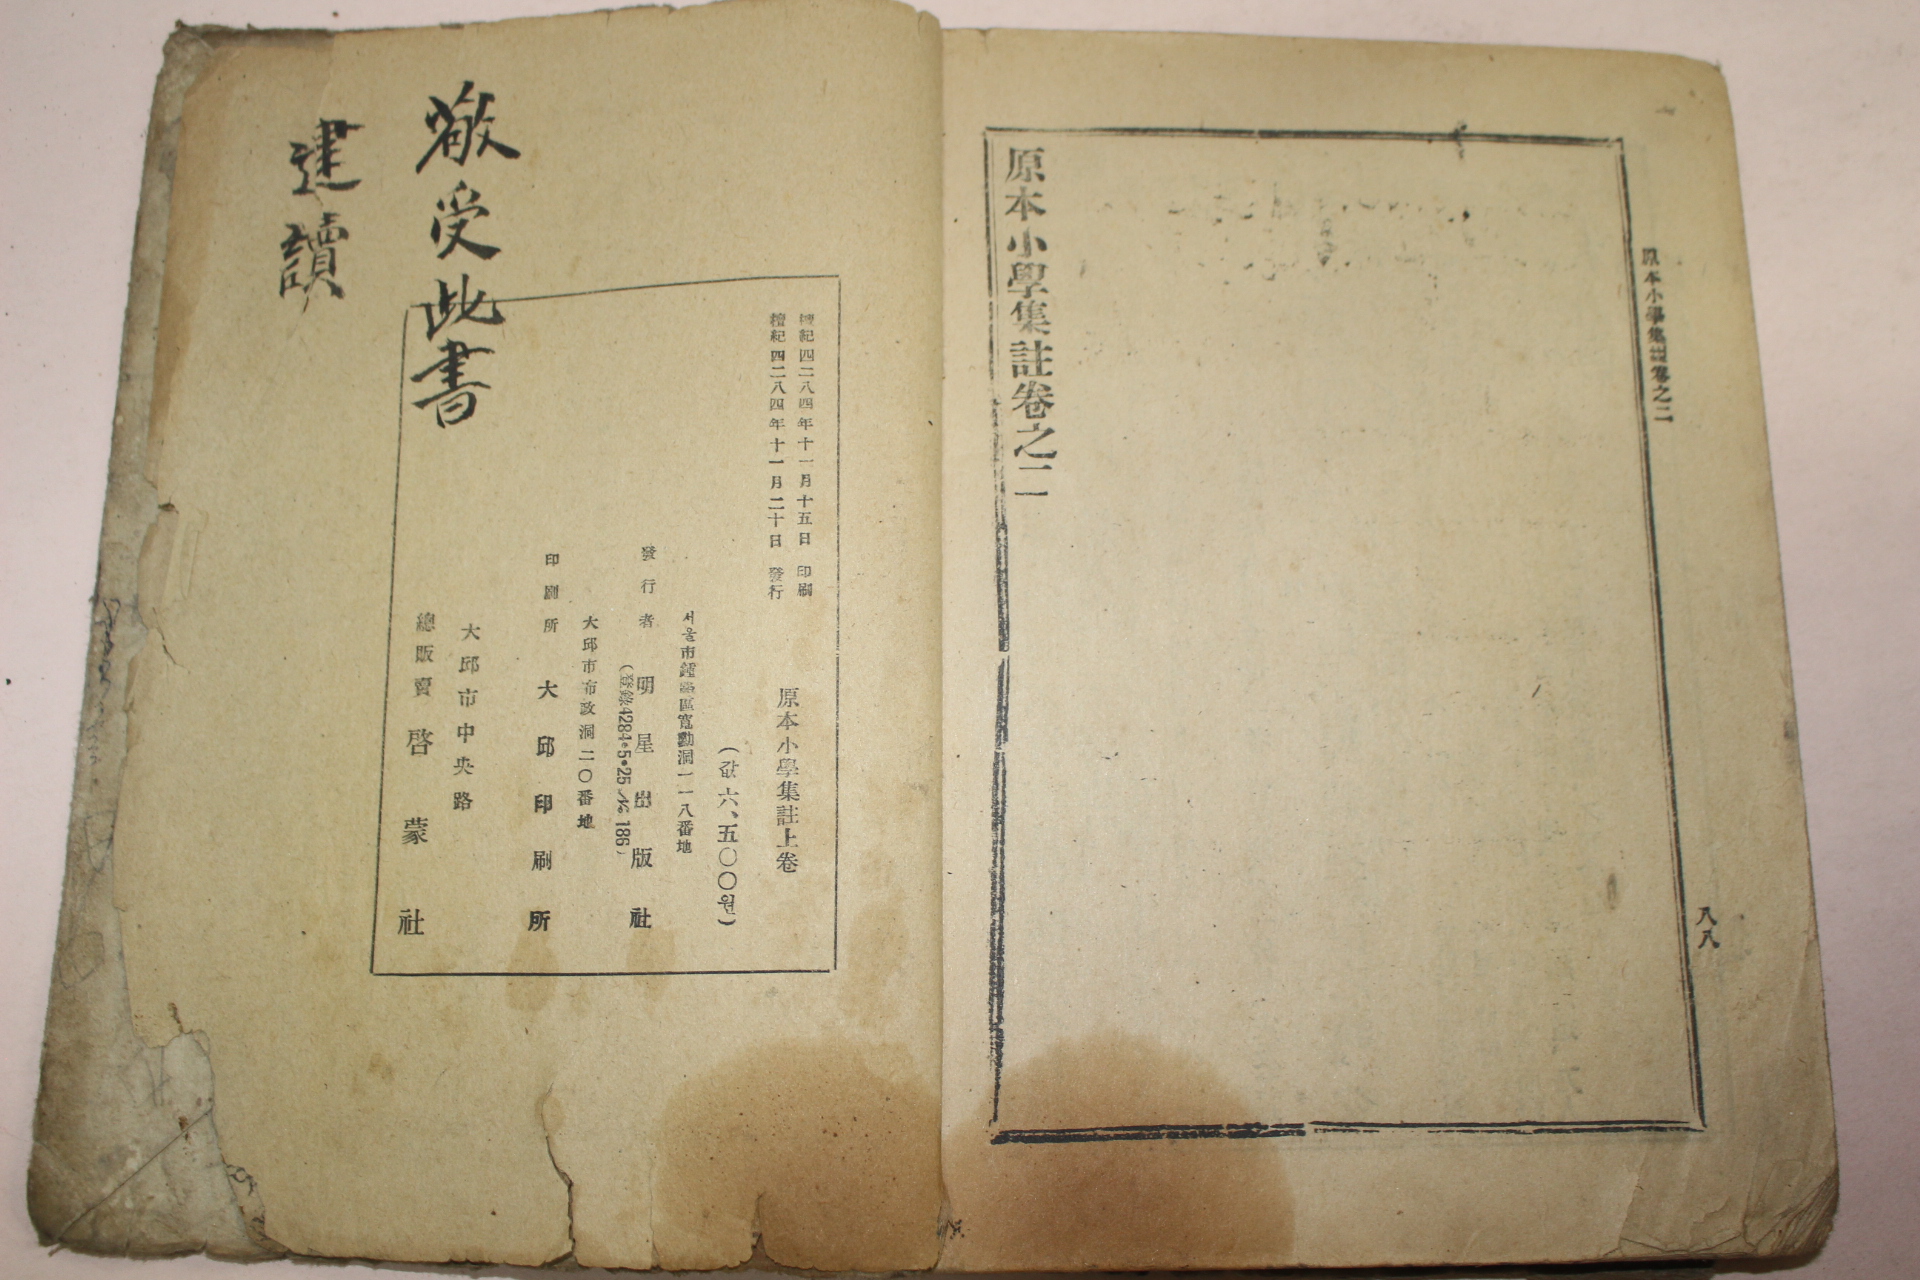 原本小學集註卷之二
八八
原本小學集註卷之二
檀紀四二八四年十一月十五日 印刷
檀紀四二八四年十一月二十日 發行
原本小學集註上卷
(값 六、五〇〇원)
서울市鍾路區寬勳洞一一八番地
發行者 明星出版社
(登錄4284•5•25 № 186)
大邱市布政洞二〇番地
印刷所 大邱印刷所
大邱市中央路
總販賣 啓蒙社
敬受此書
建讀